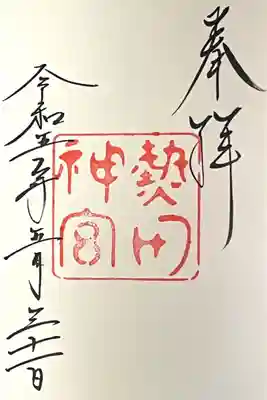 奉拝
熱田神宮
令和五年五月三十一日